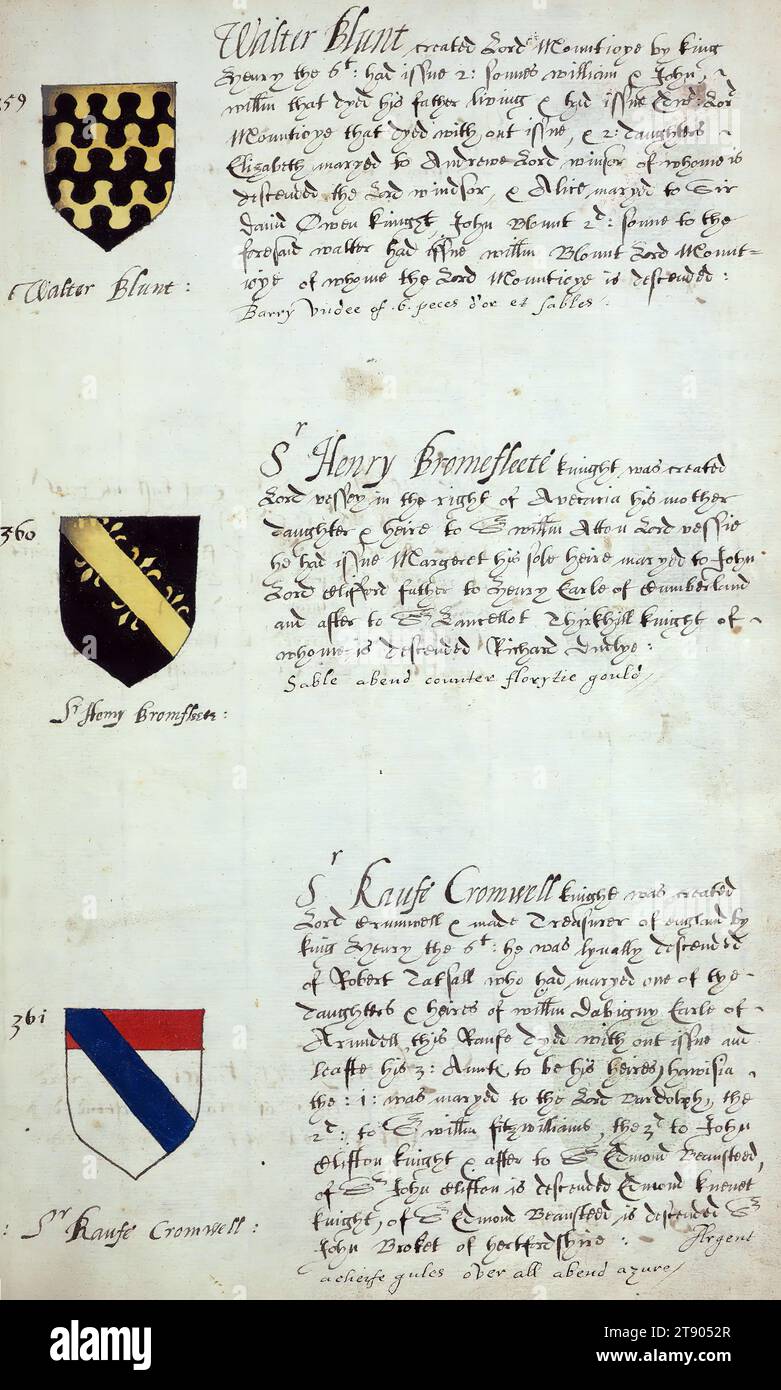 359
Walter Blunt created Lord Mountioye by king
Henry the 6t: had issue 2: sonnes william & John,
willm that dyed his father living & had issue Edw: Lord
Mountioye that dyed with out issue, & 2: daughters
Elizabeth maryed to Andrewe Lord winsor of whome is
discended the Lord windsor, & Alice maryed to Sir
david Owen knight, John Blount 2d: sonne to the
foresaid walter had issue willm Blount Lord Mount=
ioye of whome the Lord Mountioye is descended:
Barry Undee of .6. peces d'or et sables.
Walter Blunt:
360
Sr Henry Bromefleete knight was created
Lord vessey in the right of his mother
daughter & heire to Sr willm Atton Lord vessie
he had issue Margeret his sole heire maryed to John
Lord Clifford father to Henry Earle of Cumberland
and after to Sr Lancellot Thyrkyll knight of
whome is descended Richard
Sable abend counter florytie gould
Sr Henry Bromfleete:
361
Sr Raufe Cromwell knight was created
Lord Crumwell & made Treasurer of england by
king Henry the 6t: he was lynally descended
of Robert Tatsall who had maryed one of the
daughters & heires of willm Dabigny Earle of
Arundell, this Raufe dyed with out issue and
leafte his 3: Aunts to be his heires, hawisia
the :1: was maryed to the Lord Bardolph, the
2d: to Sr willm fitzwilliams, the 3d to John
Clifton knight & after to Sr Edmond Beansteed,
of Sr John Clifton is descended Edmond knevet
knight, of Sr Edmond Beansteed is descended Sr
John Broket of hertfordshyre: Argent
a cheife gules over all abend azure
: Sr Raufe Cromwell:
alamy
Image ID: 2T9052R
www.alamy.com